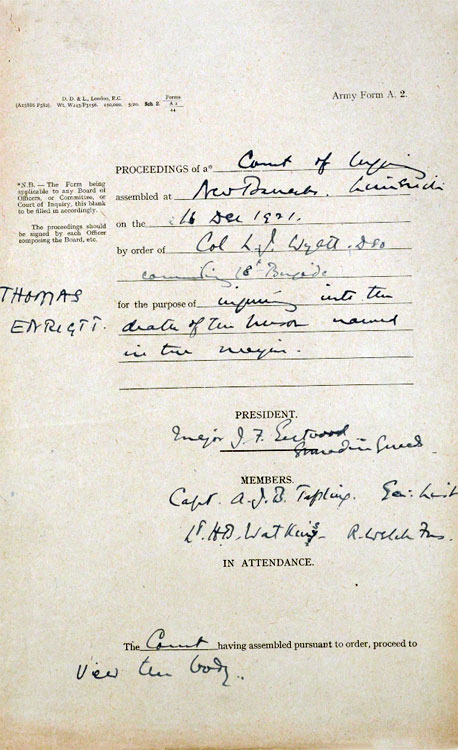 D. D. & L., London, E.C. Forms
(A25886 P582). Wt. W243/P3156. 250,000. 5/20. Sch Z. A 2
44
Army Form A. 2.
*N.B.—The Form being
applicable to any Board of
Officers, or Committee, or
Court of Inquiry, this blank
to be filled in accordingly.
The proceedings should
be signed by each Officer
composing the Board, etc.
PROCEEDINGS of a* Court of Inquiry
assembled at New Barracks. Limerick
on the 16 Dec 1921.
by order of Col L. J. Wyatt. DSO
commanding 18th Brigade
THOMAS
ENRIGTT.
for the purpose of inquiring into the
death of the person named
in the margin.
PRESIDENT.
Major J. F. Eastwood
Grenadier Guards.
MEMBERS.
Capt. A. J. B. Gen: List
Lt. H.D. Watkins R. Welch Fus.
IN ATTENDANCE.
The Court having assembled pursuant to order, proceed to
View the body.